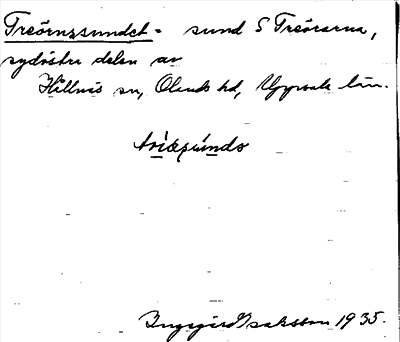 Treörnssundet - sund S Treörarna,
sydöstra delen av
Hållnäs sn, Olands hd, Uppsala län.
Ingegärd Isaksson 1935.